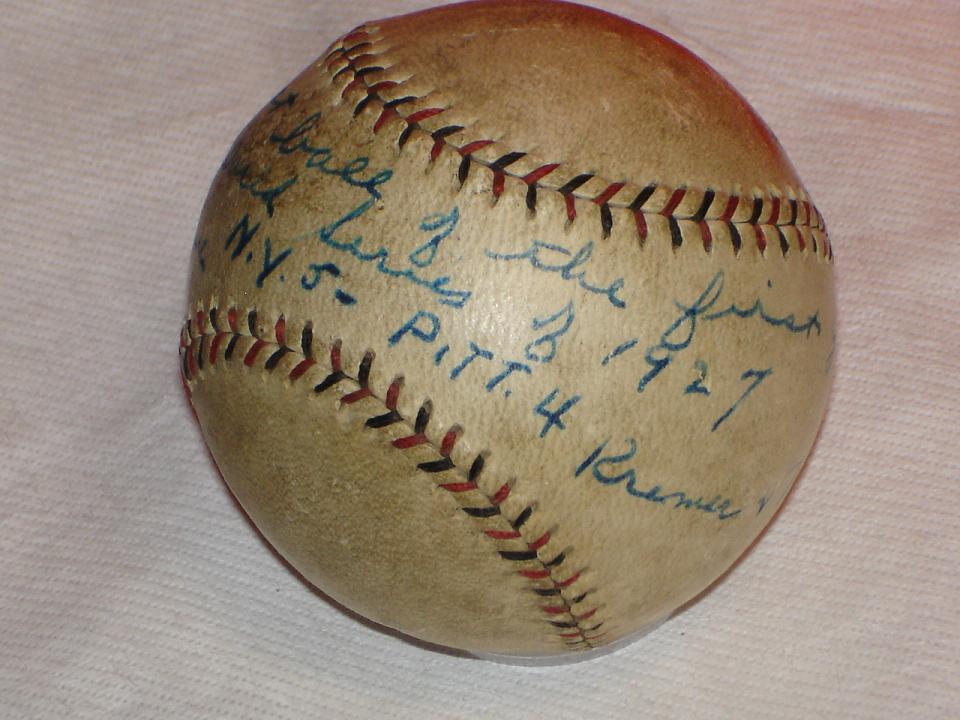 ball of the first
Series of 1927
N.Y. 5- PITT. 4 Kremer